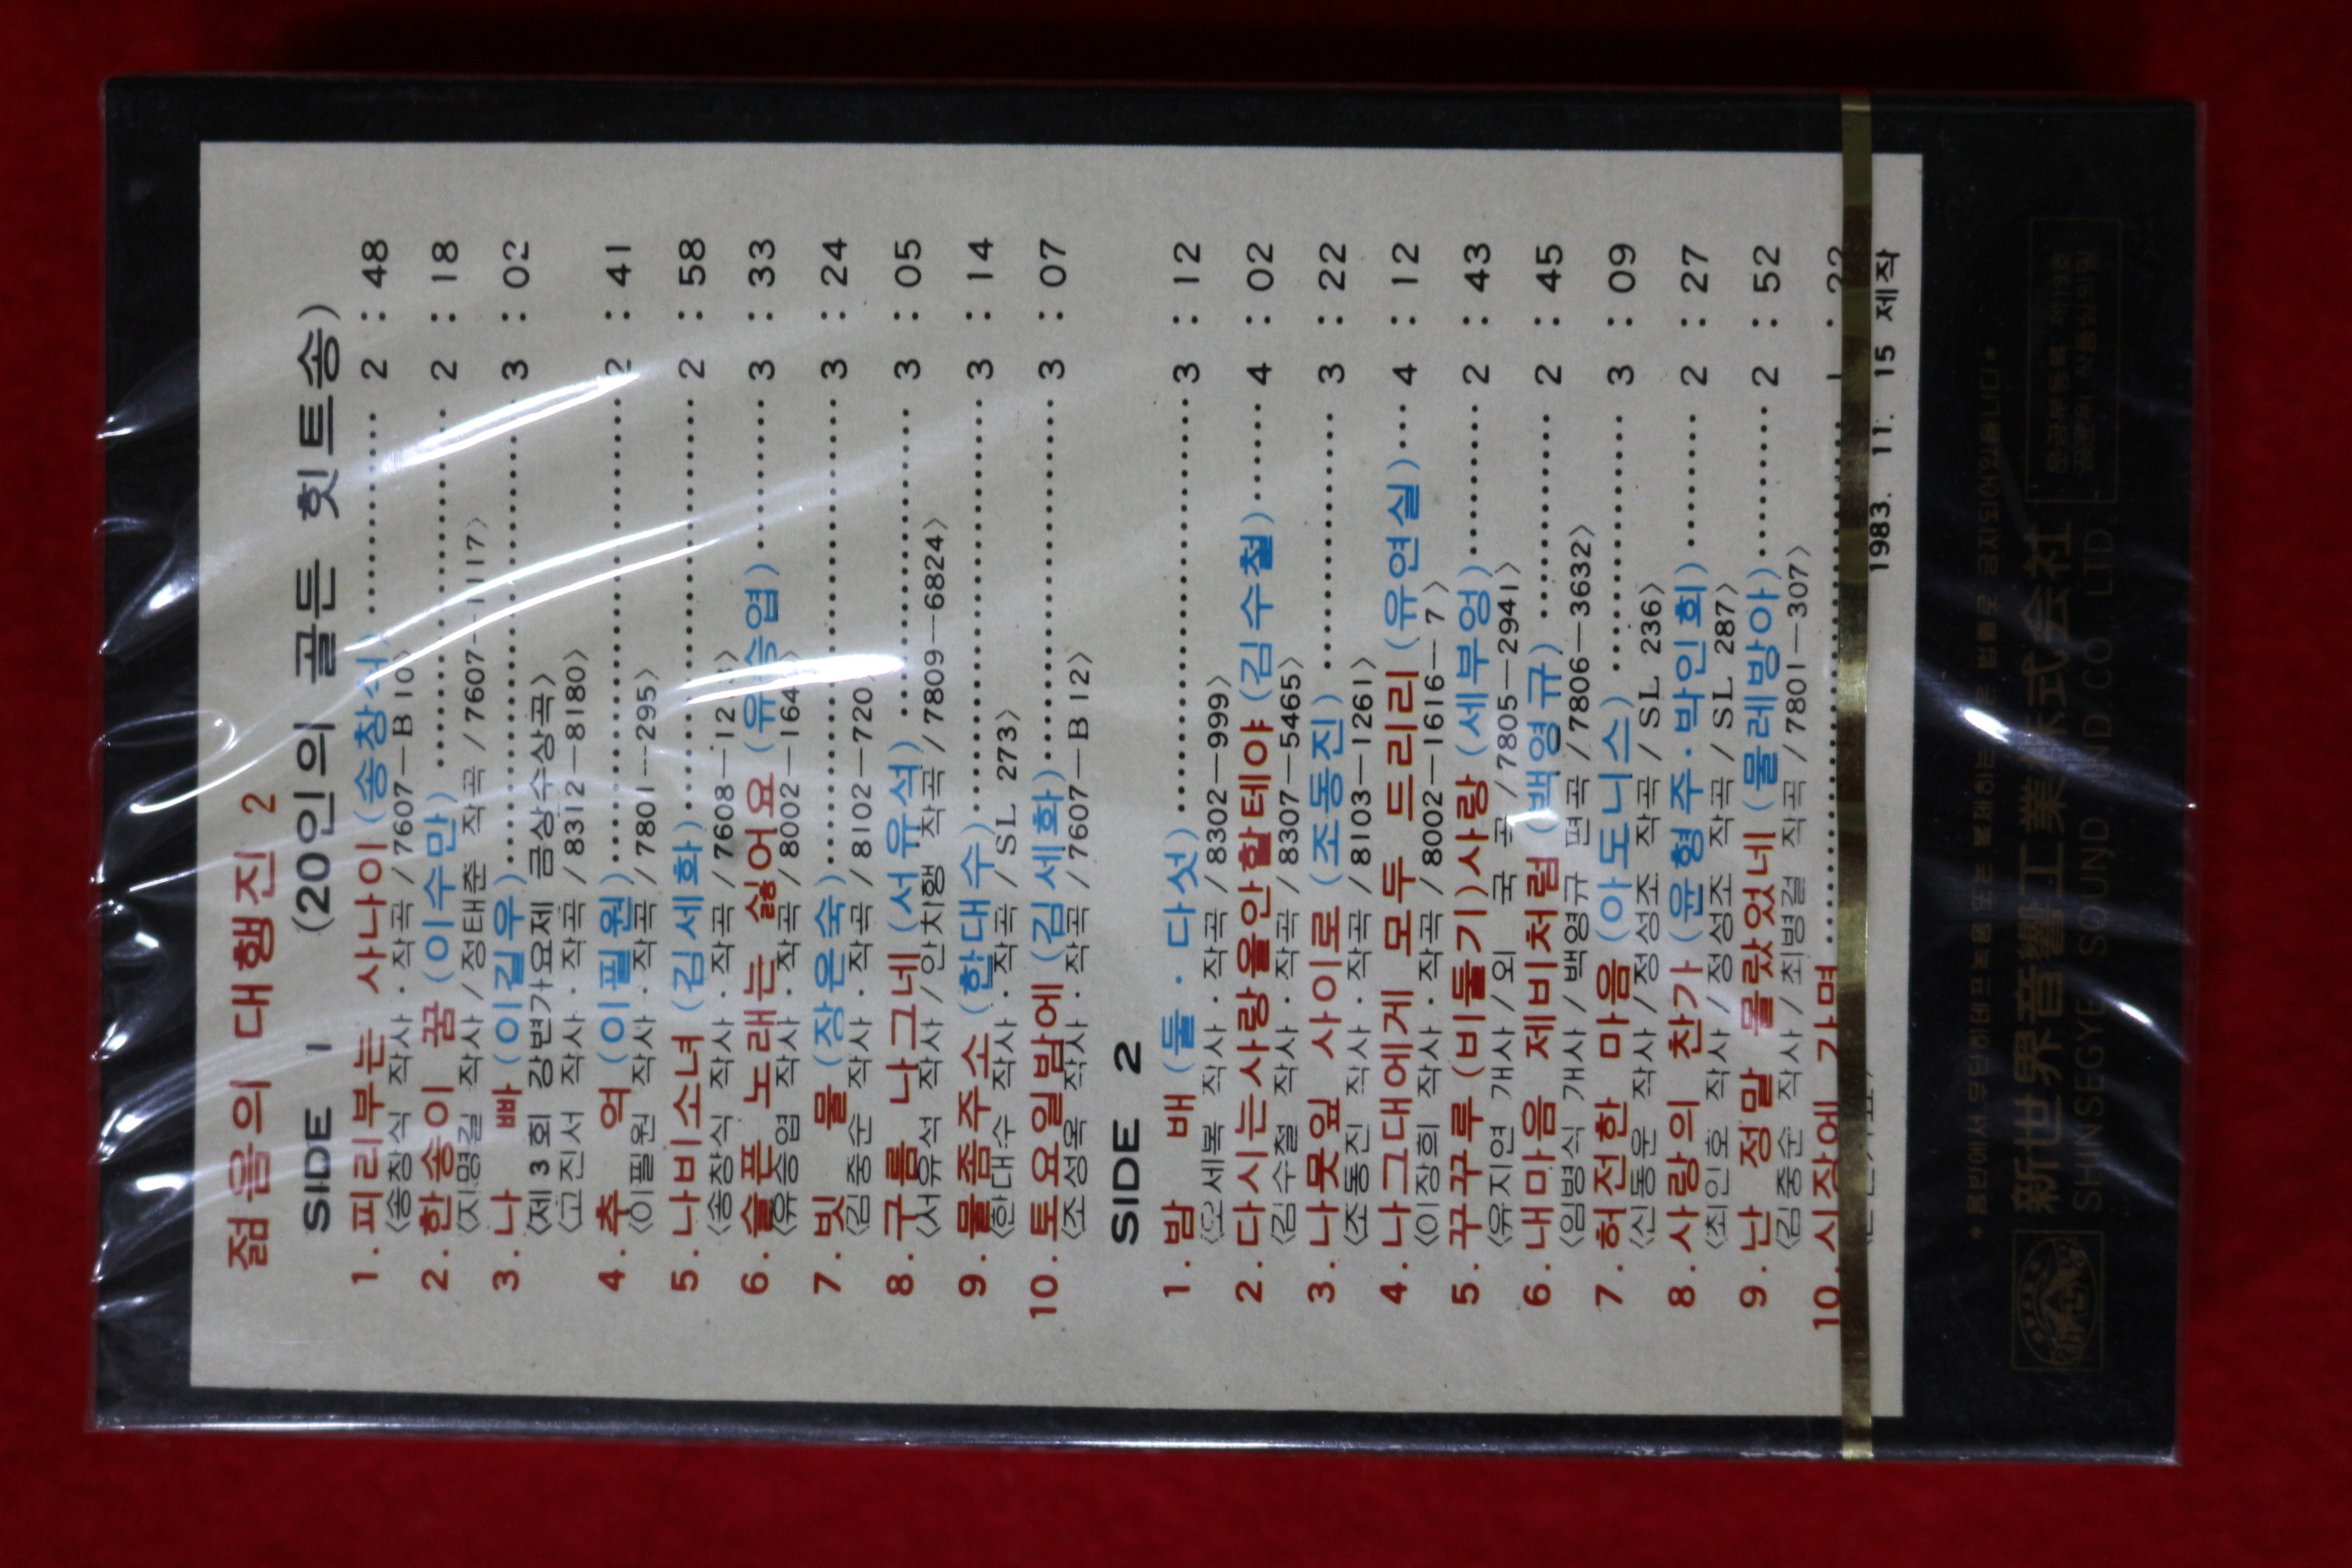 젊음의 대행진 2
SIDE 1 (20인의 골든 힛트송)
1. 피리부는 사나이 (송창식) 2 : 48
〈송창식 작사 · 작곡 / 7607—B 10〉
2. 한송이 꿈 (이수만) 2 : 18
〈지명길 작사 / 정태준 작곡 / 7607—1117〉
3. 나 빠 (이길우) 3 : 02
〈제 3 회 강변가요제 금상수상곡〉
〈고진서 작사 · 작곡 / 8312—8180〉
4. 추 억 (이필원) 2 : 41
〈이필원 작사 · 작곡 / 7801—295〉
5. 나비소녀 (김세화) 2 : 58
〈송창식 작사 · 작곡 / 7608—
6. 슬픈 노래는 싫어요 (유승엽) 3 : 33
〈유승엽 작사 · 작곡 / 8002—
7. 빗 물 (장은숙) 3 : 24
〈김중순 작사 · 작곡 / 8102—720〉
8. 구름 나그네 (서유석) 3 : 05
〈서유석 작사 / 안치행 작곡 / 7809—6824〉
9. 물좀주소 (한대수) 3 : 14
〈한대수 작사 · 작곡 / SL 273〉
10. 토요일밤에 (김세화) 3 : 07
〈조성욱 작사 · 작곡 / 7607—B 12〉
SIDE 2
1. 밤 배 (둘 · 다섯) 3 : 12
〈오세복 작사 · 작곡 / 8302—999〉
2. 다시는사랑을안할테야 (김수철) 4 : 02
〈김수철 작사 · 작곡 / 8307—5465〉
3. 나뭇잎 사이로 (조동진) 3 : 22
〈조동진 작사 · 작곡 / 8103—1261〉
4. 나그대에게 모두 드리리 (유연실) 4 : 12
〈이장희 작사 · 작곡 / 8002—1616—7〉
5. 꾸꾸루(비둘기)사랑 (세부엉) 2 : 43
〈유지연 개사 / 외 국 곡 / 7805—2941〉
6. 내마음 제비처럼 (백영규) 2 : 45
〈임병식 개사 / 백영규 편곡 / 7806—3632〉
7. 허전한 마음 (아도니스) 3 : 09
〈신동운 작사 / 정성조 작곡 / SL 236〉
8. 사랑의 찬가 (윤형주 · 박인희) 2 : 27
〈최인호 작사 / 정성조 작곡 / SL 287〉
9. 난 정말 몰랐었네 (물레방아) 2 : 52
〈김중순 작사 / 최병걸 작곡 / 7801—307〉
10. 시장에 가면 1 : 22
1983. 11. 15 제작
* 음반에서 무단히테프복음 또는 불제하는 은 법률로 금지되어있읍니다 *
新世界音響工業株式会社
SHINSEGYE SOUND IND. CO., LTD.
문공부등록 제1호
공윤위 작품심의필